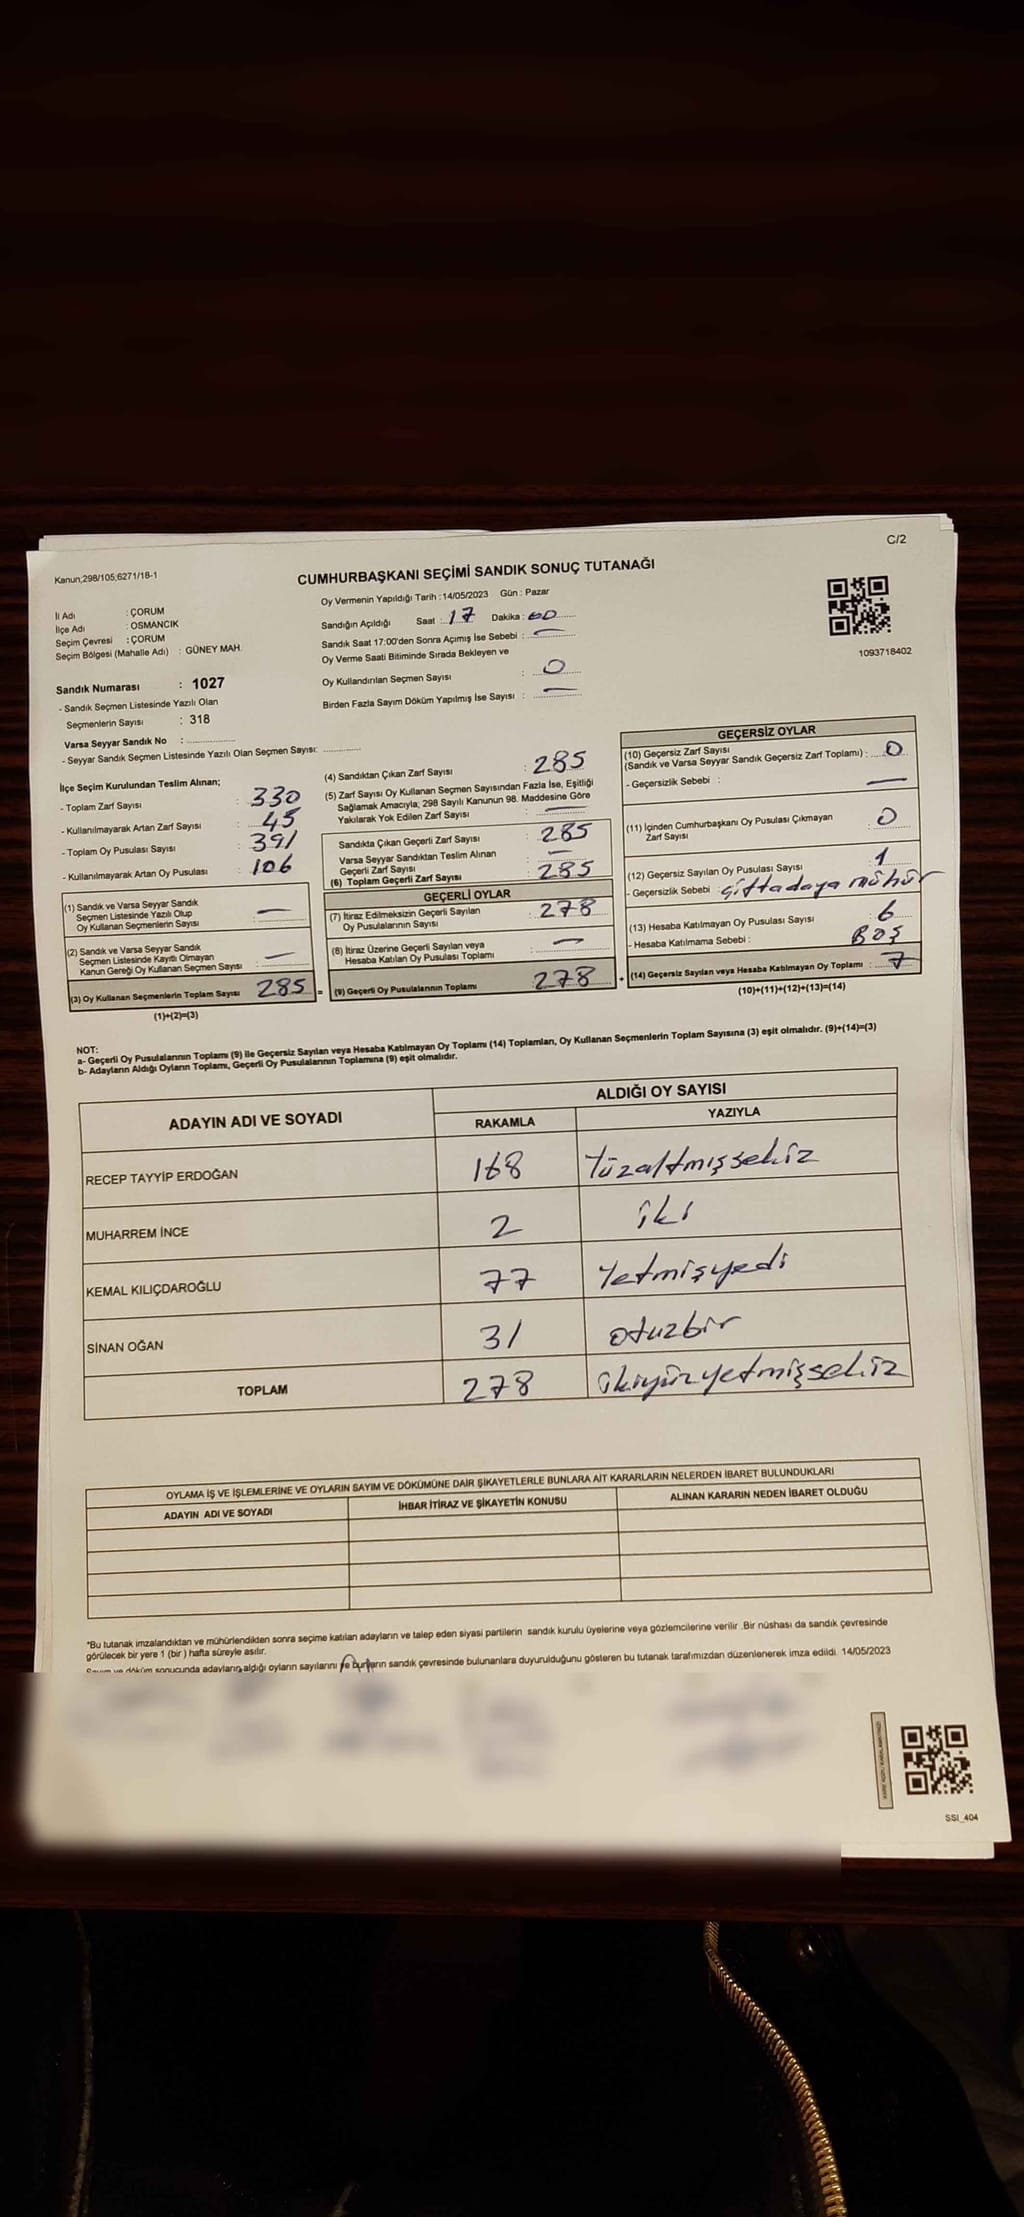 C/2
Kanun;298/105;6271/18-1
CUMHURBAŞKANI SEÇİMİ SANDIK SONUÇ TUTANAĞI
Oy Vermenin Yapıldığı Tarih :14/05/2023 Gün : Pazar
İl Adı : ÇORUM
İlçe Adı : OSMANCIK
Seçim Çevresi : ÇORUM
Seçim Bölgesi (Mahalle Adı) : GÜNEY MAH.
Sandığın Açıldığı Saat : 17 Dakika : 00
Sandık Saat 17:00'den Sonra Açımış İse Sebebi : —
Oy Verme Saati Bitiminde Sırada Bekleyen ve
Oy Kullandırılan Seçmen Sayısı : 0
Birden Fazla Sayım Döküm Yapılmış İse Sayısı : —
1093718402
Sandık Numarası : 1027
- Sandık Seçmen Listesinde Yazılı Olan
Seçmenlerin Sayısı : 318
Varsa Seyyar Sandık No :
- Seyyar Sandık Seçmen Listesinde Yazılı Olan Seçmen Sayısı:
İlçe Seçim Kurulundan Teslim Alınan;
- Toplam Zarf Sayısı : 330
- Kullanılmayarak Artan Zarf Sayısı : 45
- Toplam Oy Pusulası Sayısı : 391
- Kullanılmayarak Artan Oy Pusulası : 106
(1) Sandık ve Varsa Seyyar Sandık
Seçmen Listesinde Yazılı Olup
Oy Kullanan Seçmenlerin Sayısı : —
(2) Sandık ve Varsa Seyyar Sandık
Seçmen Listesinde Kayıtlı Olmayan
Kanun Gereği Oy Kullanan Seçmen Sayısı : —
(3) Oy Kullanan Seçmenlerin Toplam Sayısı 285 =
(1)+(2)=(3)
(4) Sandıktan Çıkan Zarf Sayısı : 285
(5) Zarf Sayısı Oy Kullanan Seçmen Sayısından Fazla İse, Eşitliği
Sağlamak Amacıyla; 298 Sayılı Kanunun 98. Maddesine Göre
Yakılarak Yok Edilen Zarf Sayısı : —
Sandıkta Çıkan Geçerli Zarf Sayısı : 285
Varsa Seyyar Sandıktan Teslim Alınan
Geçerli Zarf Sayısı : —
(6) Toplam Geçerli Zarf Sayısı : 285
GEÇERLİ OYLAR
(7) İtiraz Edilmeksizin Geçerli Sayılan
Oy Pusulalarının Sayısı : 278
(8) İtiraz Üzerine Geçerli Sayılan veya
Hesaba Katılan Oy Pusulası Toplamı : —
(9) Geçerli Oy Pusulalarının Toplamı : 278 +
GEÇERSİZ OYLAR
(10) Geçersiz Zarf Sayısı
(Sandık ve Varsa Seyyar Sandık Geçersiz Zarf Toplamı) : 0
- Geçersizlik Sebebi : —
(11) İçinden Cumhurbaşkanı Oy Pusulası Çıkmayan
Zarf Sayısı : 0
(12) Geçersiz Sayılan Oy Pusulası Sayısı : 1
- Geçersizlik Sebebi : çift adaya mühür
(13) Hesaba Katılmayan Oy Pusulası Sayısı : 6
- Hesaba Katılmama Sebebi : BOŞ
(14) Geçersiz Sayılan veya Hesaba Katılmayan Oy Toplamı : 7
(10)+(11)+(12)+(13)=(14)
NOT:
a- Geçerli Oy Pusulalarının Toplamı (9) ile Geçersiz Sayılan veya Hesaba Katılmayan Oy Toplamı (14) Toplamları, Oy Kullanan Seçmenlerin Toplam Sayısına (3) eşit olmalıdır. (9)+(14)=(3)
b- Adayların Aldığı Oyların Toplamı, Geçerli Oy Pusulalarının Toplamına (9) eşit olmalıdır.
ADAYIN ADI VE SOYADI
ALDIĞI OY SAYISI
RAKAMLA YAZIYLA
RECEP TAYYİP ERDOĞAN 168 Yüzaltmışsekiz
MUHARREM İNCE 2 iki
KEMAL KILIÇDAROĞLU 77 Yetmişyedi
SİNAN OĞAN 31 otuzbir
TOPLAM 278 ikiyüzyetmişsekiz
OYLAMA İŞ VE İŞLEMLERİNE VE OYLARIN SAYIM VE DÖKÜMÜNE DAİR ŞİKAYETLERLE BUNLARA AİT KARARLARIN NELERDEN İBARET BULUNDUKLARI
ADAYIN ADI VE SOYADI İHBAR İTİRAZ VE ŞİKAYETİN KONUSU ALINAN KARARIN NEDEN İBARET OLDUĞU
*Bu tutanak imzalandıktan ve mühürlendikten sonra seçime katılan adayların ve talep eden siyasi partilerin sandık kurulu üyelerine veya gözlemcilerine verilir .Bir nüshası da sandık çevresinde
görülecek bir yere 1 (bir ) hafta süreyle asılır.
Sayım ve döküm sonucunda adayların aldığı oyların sayılarını ve bunların sandık çevresinde bulunanlara duyurulduğunu gösteren bu tutanak tarafımızdan düzenlenerek imza edildi. 14/05/2023
SSI_404